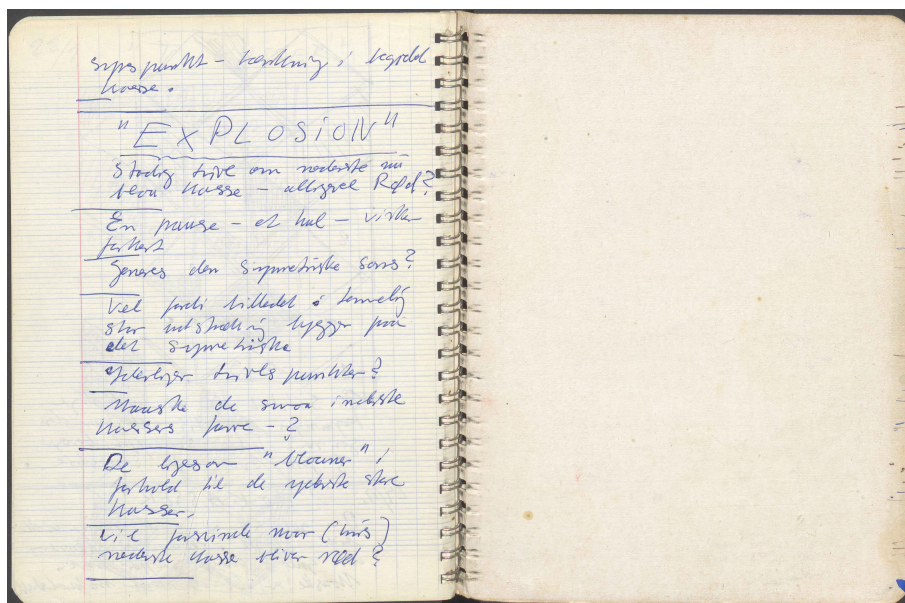 synspunkt - tænkning i
kasse.
"EXPLOSION"
Stadig tvivl om nederste nu
blaa kasse - alligevel Rød?
En pause - et hul - virker
forkert
Generes den symetriske sans?
Vel fordi billedet i temmelig
stor udstrækning bygger paa
det symetriske
Yderliger tvivls punkter?
Maaske de smaa inderste
kassers farve - ?
De ligesom "blaaner" i
forhold til de yderste store
kasser.
vil forsvinde naar (hvis)
nederste kasse bliver rød?